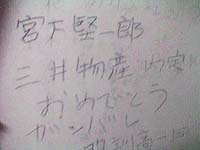 宮下堅一郎
三井物産 内定
おめでとう
ガンバレ